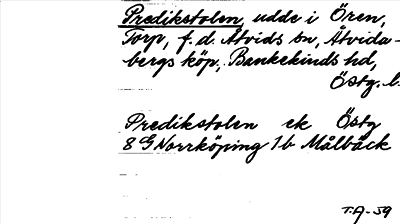 Predikstolen, udde i Ören,
Torp, f.d. Åtvids sn, Åtvida-
bergs köp, Bankekinds hd,
Östg. l.
Predikstolen ek Östg
8 G Norrköping 1b Målbäck
T.A-59